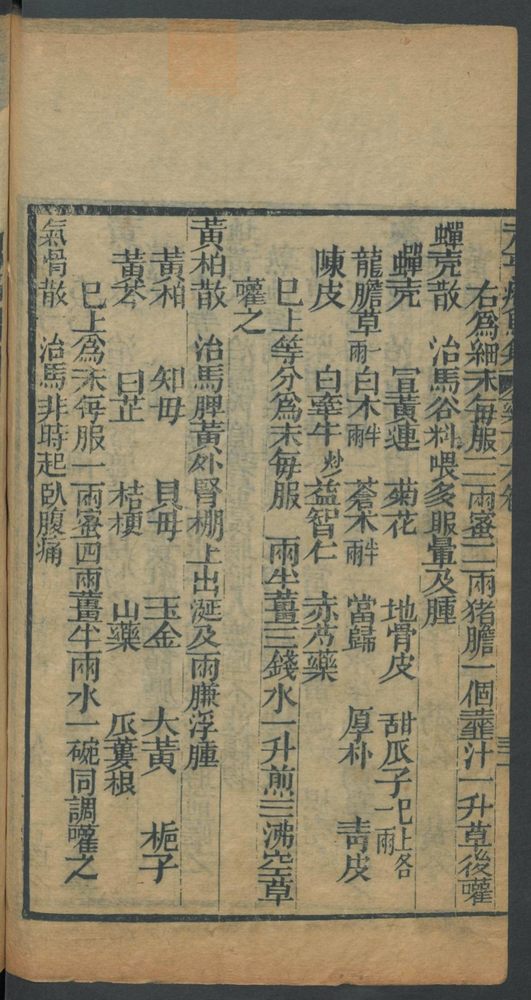 右爲細末每服二兩蜜二兩猪膽一個虀汁一升草後嚾
蟬壳散　治馬谷料喂多眼暈及腫
蟬壳　宣黃連　菊花　地骨皮　甜瓜子一兩已上各
龍膽草一兩　白术半兩　蒼术半兩　當歸　厚朴　靑皮
陳皮　白牽牛炒　益智仁　赤芍藥
已上等分爲末每服一兩半薑三錢水一升煎三沸空草
嚾之
黃柏散　治馬脾黃外腎棚上出涎及兩膁浮腫
黃柏　知母　貝母　玉金　大黃　梔子
黃芩　白芷　桔梗　山藥　瓜蔞根
已上爲末每服一兩蜜四兩薑半兩水一碗同調嚾之
氣骨散　治馬非時起臥腹痛